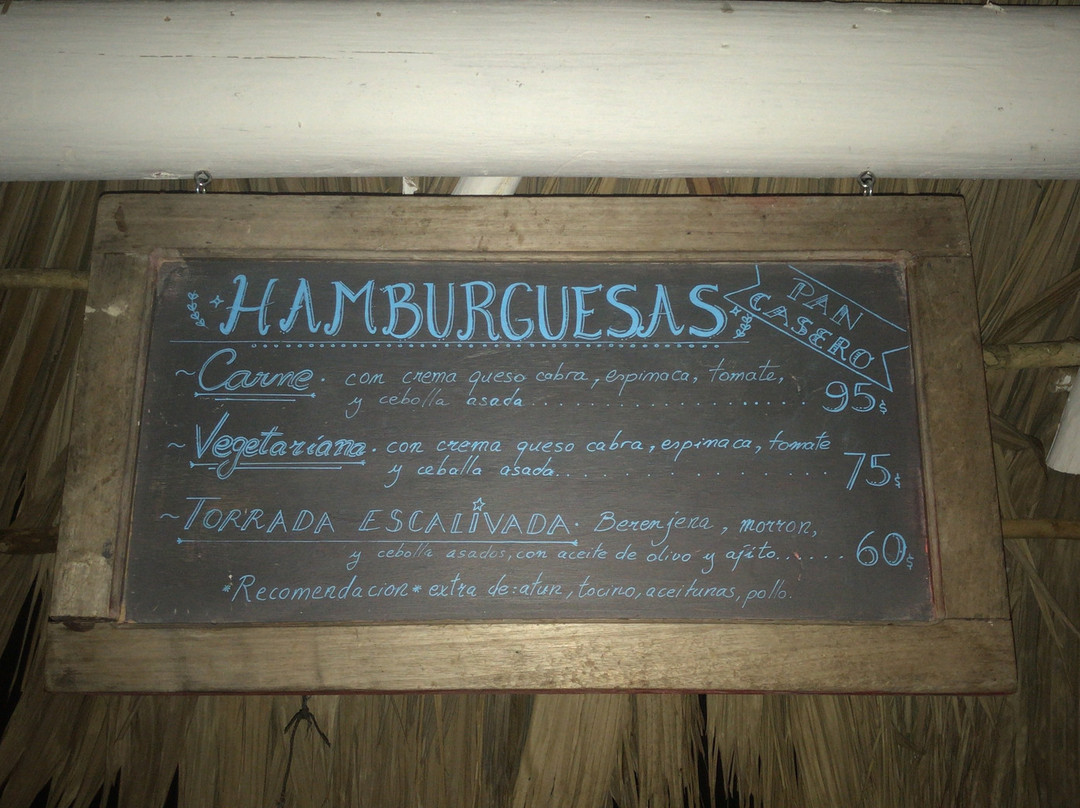 HAMBURGUESAS
PAN
CASERO
~Carne. con crema queso cabra, espinaca, tomate,
y cebolla asada........................ 95$
~Vegetariana. con crema queso cabra, espinaca, tomate
y ceballa asada.................. 75$
~TORRADA ESCALIVADA. Berenjena, morron,
y cebolla asados, con aceite de olivo y ajito....... 60$
*Recomendacion* extra de: atun, tocino, aceitunas, pollo.